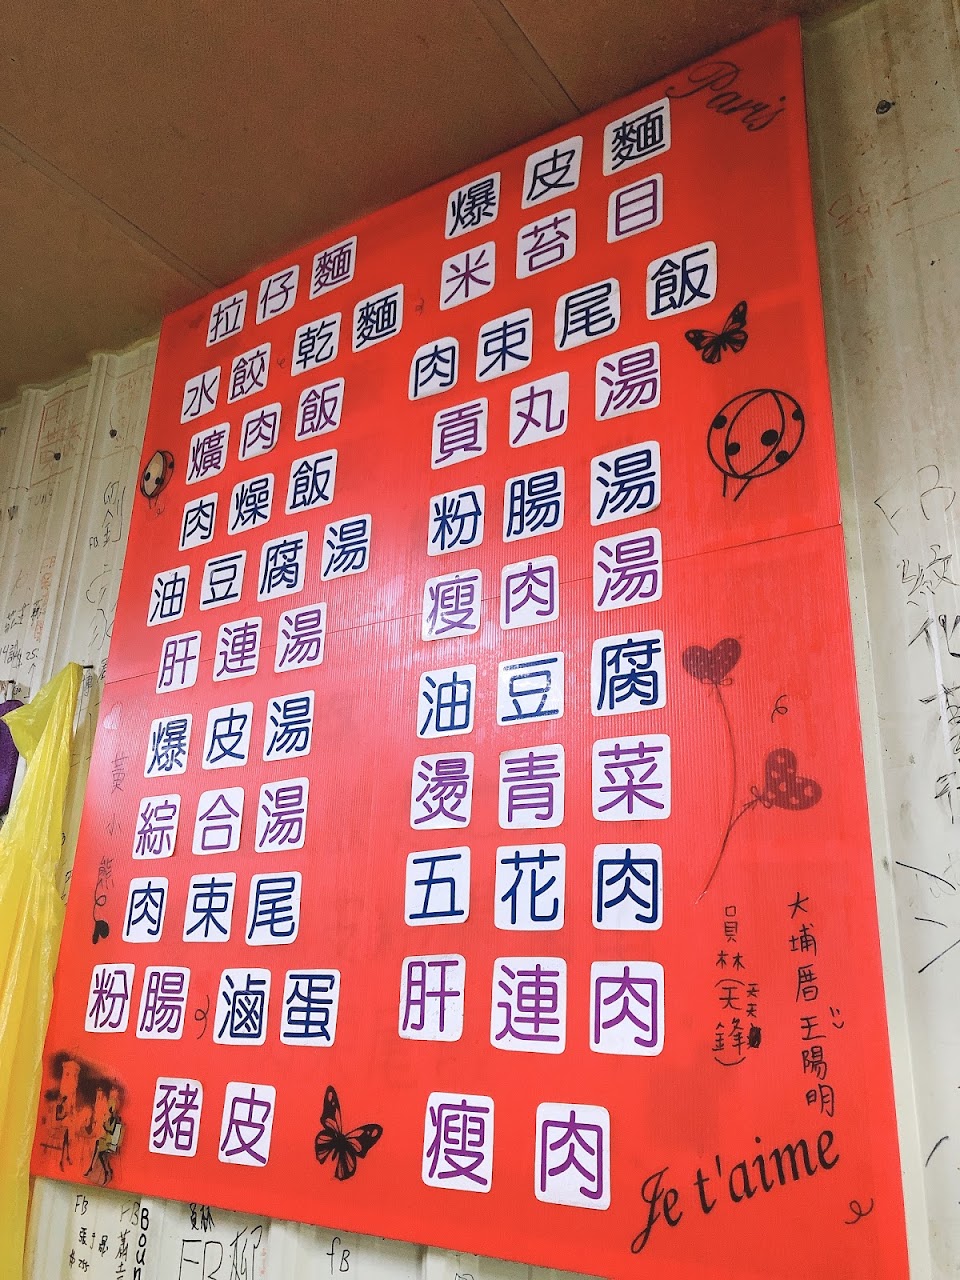 Paris
拉仔麵
水餃 乾麵
爌肉飯
肉燥飯
油豆腐湯
肝連湯
爆皮湯
綜合湯
肉束尾
粉腸 滷蛋
豬皮
爆皮麵
米苔目
肉束尾飯
貢丸湯
粉腸湯
瘦肉湯
油豆腐
燙青菜
五花肉
肝連肉
瘦肉
Je t'aime
大埔厝王陽明
員林(天鋒)
黃小熊
FB
FB
fB